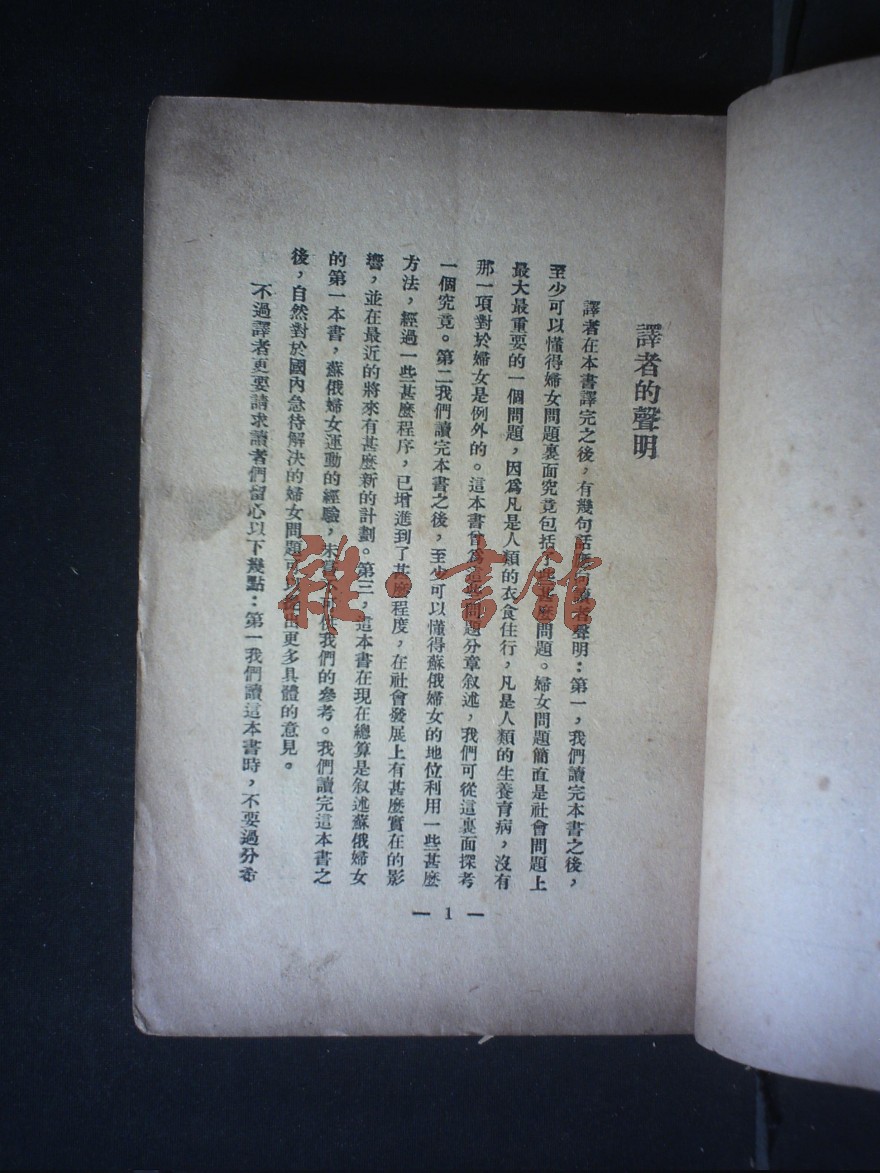 譯者的聲明
譯者在本書譯完之後，有幾句話應向讀者聲明：第一，我們讀完本書之後，
至少可以懂得婦女問題裏面究竟包括一些甚麼問題。婦女問題簡直是社會問題上
最大最重要的一個問題，因爲凡是人類的衣食住行，凡是人類的生養育病，沒有
那一項對於婦女是例外的。這本書曾爲這些問題分章叙述，我們可從這裏面探考
一個究竟。第二我們讀完本書之後，至少可以懂得蘇俄婦女的地位利用一些甚麼
方法，經過一些甚麼程序，已增進到了甚麼程度，在社會發展上有甚麼實在的影
響，並在最近的將來有甚麼新的計劃。第三，這本書在現在總算是叙述蘇俄婦女
的第一本書，蘇俄婦女運動的經驗，未嘗不可供我們的參考。我們讀完這本書之
後，自然對於國內急待解决的婦女問題可以提出更多具體的意見。
不過譯者更要請求讀者們留心以下幾點：第一我們讀這本書時，不要過分希
— 1 —
雜·書館